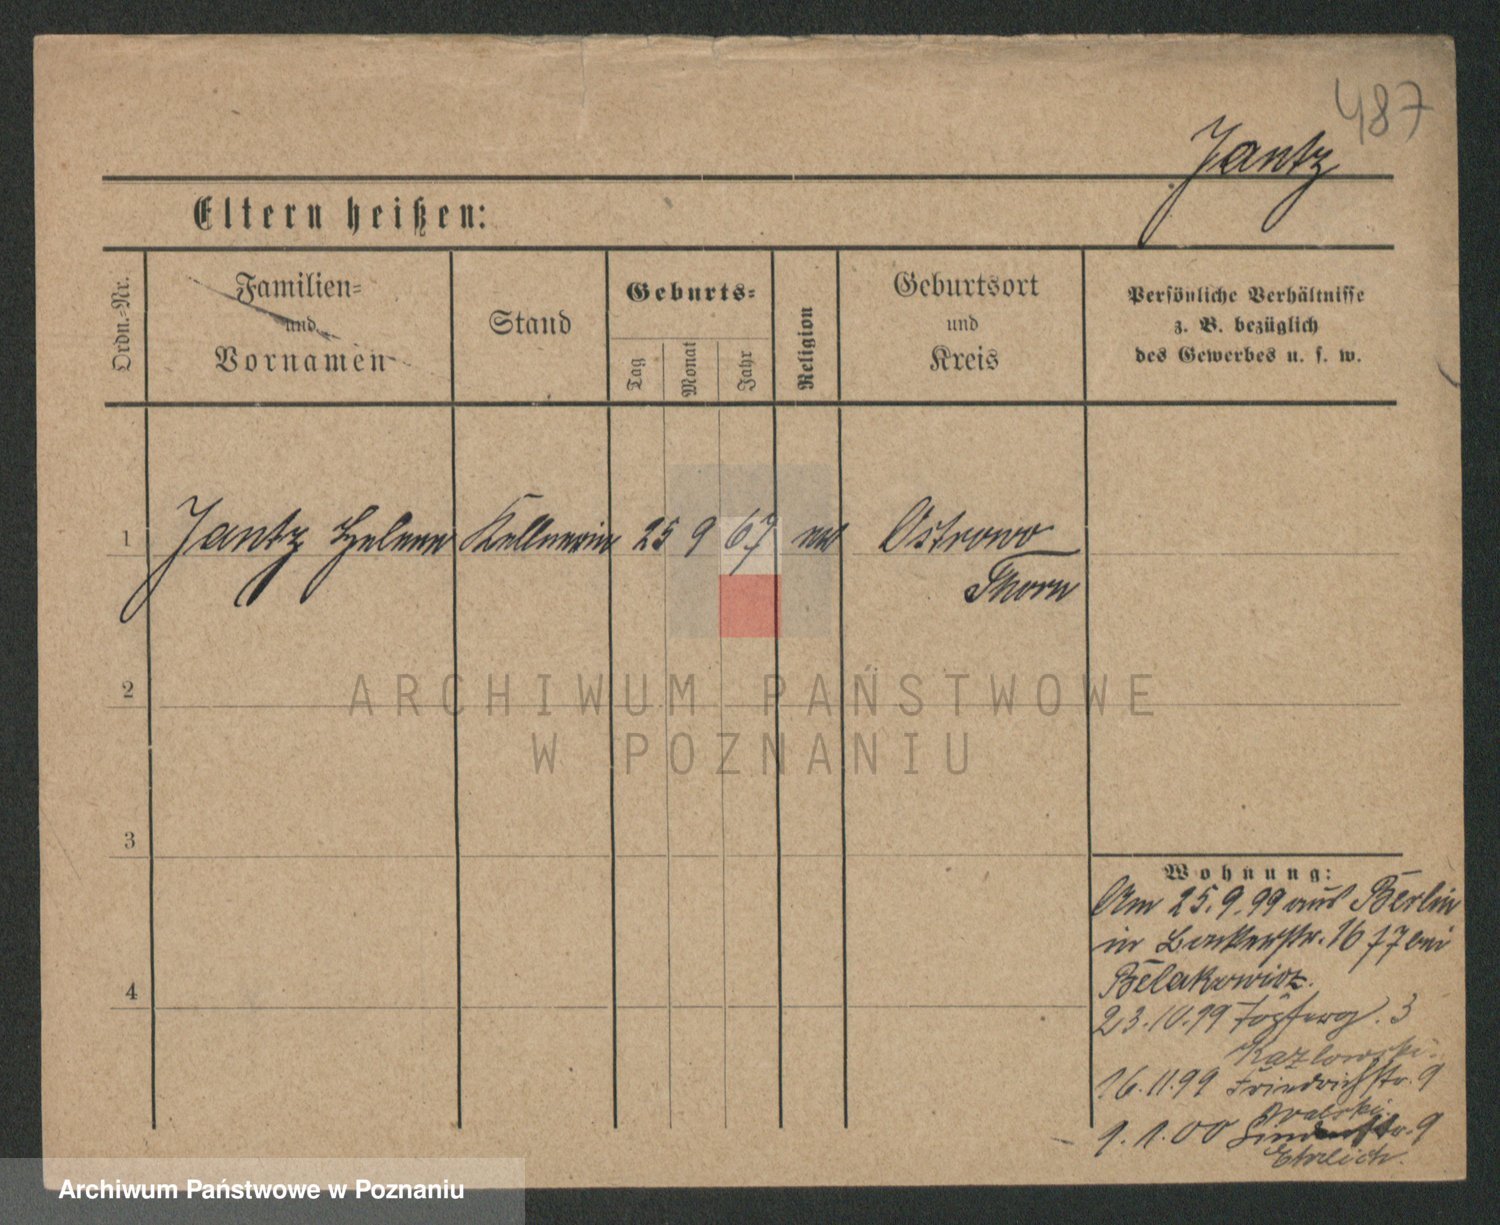 487
Jantz
Eltern heißen:
Ordn.-Nr.
Familien-
und
Vornamen
Stand
Geburts-
Tag
Monat
Jahr
Religion
Geburtsort
und
Kreis
Persönliche Verhältnisse
z. B. bezüglich
des Gewerbes u. s. w.
1 Jantz Helene Kellnerin 25 9 67 Ostrowo
Thorn
2
ARCHIWUM PAŃSTWOWE
W POZNANIU
3
4
Wohnung:
Am 25.9.99 aus Berlin
in 16 bei
Belakowicz.
23.10.99 3
Kazlowski.
16.11.99 Friedrichstr. 9
1.00 9
Ehrlich.
Archiwum Państwowe w Poznaniu